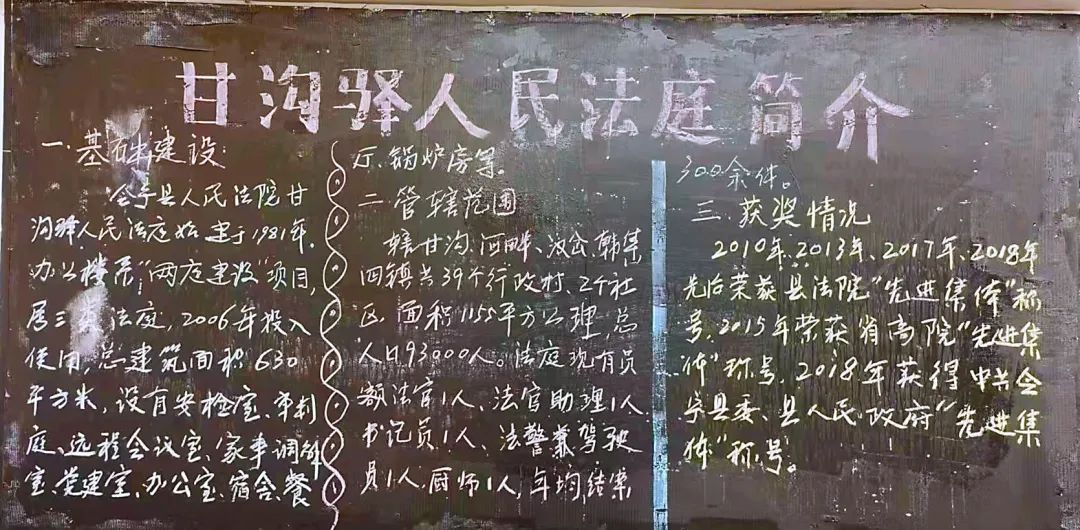 甘沟驿人民法庭简介
一.基础建设:
会宁县人民法院甘
沟驿人民法庭始建于1981年.
办公楼系"两庭建设"项目,
属三类法庭,2006年投入
使用,总建筑面积630
平方米,设有安检室、审判
庭、远程会议室、家事调解
室、党建室、办公室、宿舍、餐
厅、锅炉房等。
二管辖范围
辖甘沟、河畔、汉岔、韩集
四镇共39个行政村、2个社
区,面积1155平方公理,总
人口93000人。法庭现有员
额法官1人、法官助理1人、
书记员1人、法警兼驾驶
员1人,厨师1人,年均结案
300余件。
三.获奖情况
2010年、2013年、2017年、2018年
先后荣获县法院"先进集体"称
号,2015年荣获省高院"先进集
体"称号,2018年获得中共会
宁县委、县人民政府"先进集
体"称号。